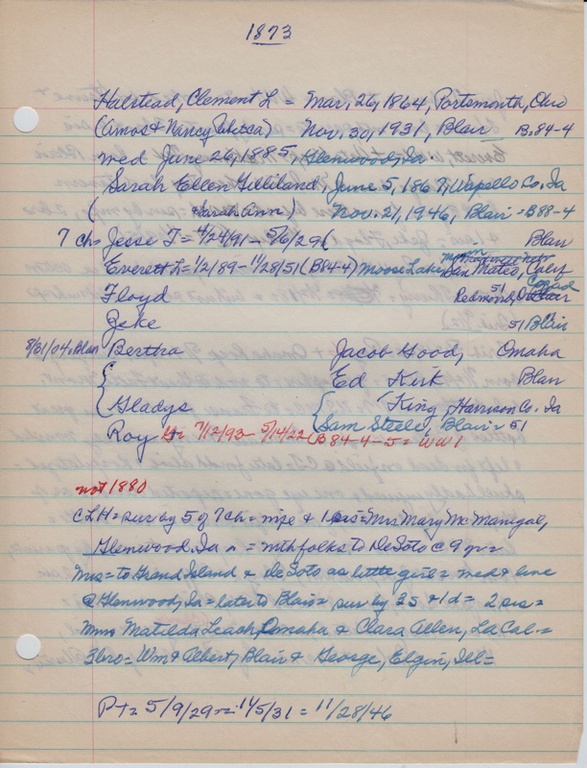 1873
Halstead, Clement L = Mar, 26, 1864, Portsmouth, Ohio
(Amos & Nancy Rebecca) Nov. 30, 1931, Blair B. 84-4
wed June 26, 1885, Glenwood, Ia.
Sarah Ellen Gilliland, June 5, 1867, Wapello Co. Ia
( Sarah Ann) Nov. 21, 1946, Blair = B88-4
7 ch = Jesse T = 4/24/91 - 5/6/29 ( Blair
Everett L = 1/2/89 - 11/28/51 (B84-4) Moose Lake, Minn San Mateo, Calif
Floyd 51 Redmond, O
Zeke 51 Blair
8/31/04 = Blair Bertha Jacob Good, Omaha
{ Ed Kirk Blair
Gladys { " King, Harrison Co. Ia
Sam Steele, Blair = 51
Roy H = 7/12/93 - 5/14/22 (B84-4-5 = WW1
not 1880
CLH = sur by 5 of 7 ch = wife & 1 sis = Mrs Mary McManigal,
Glenwood. Ia = with folks to DeSoto c 9 yr =
Mrs = to Grand Island & DeSoto as little girl = wed & live
@ Glenwood, Ia = later to Blair = sur by 3S & 1d = 2 sis =
Mmes Matilda Leach, Omaha & Clara Allen, La Cal. =
3 bro = Wm & Albert, Blair & George, Elgin, Ill =
PT = 5/9/29 = 11/5/31 = 11/28/46